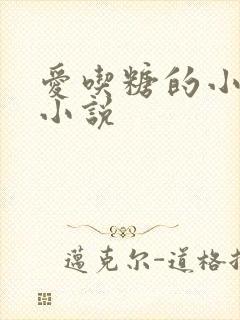 愛喫糖的小
小説
邁克尔-道格拉